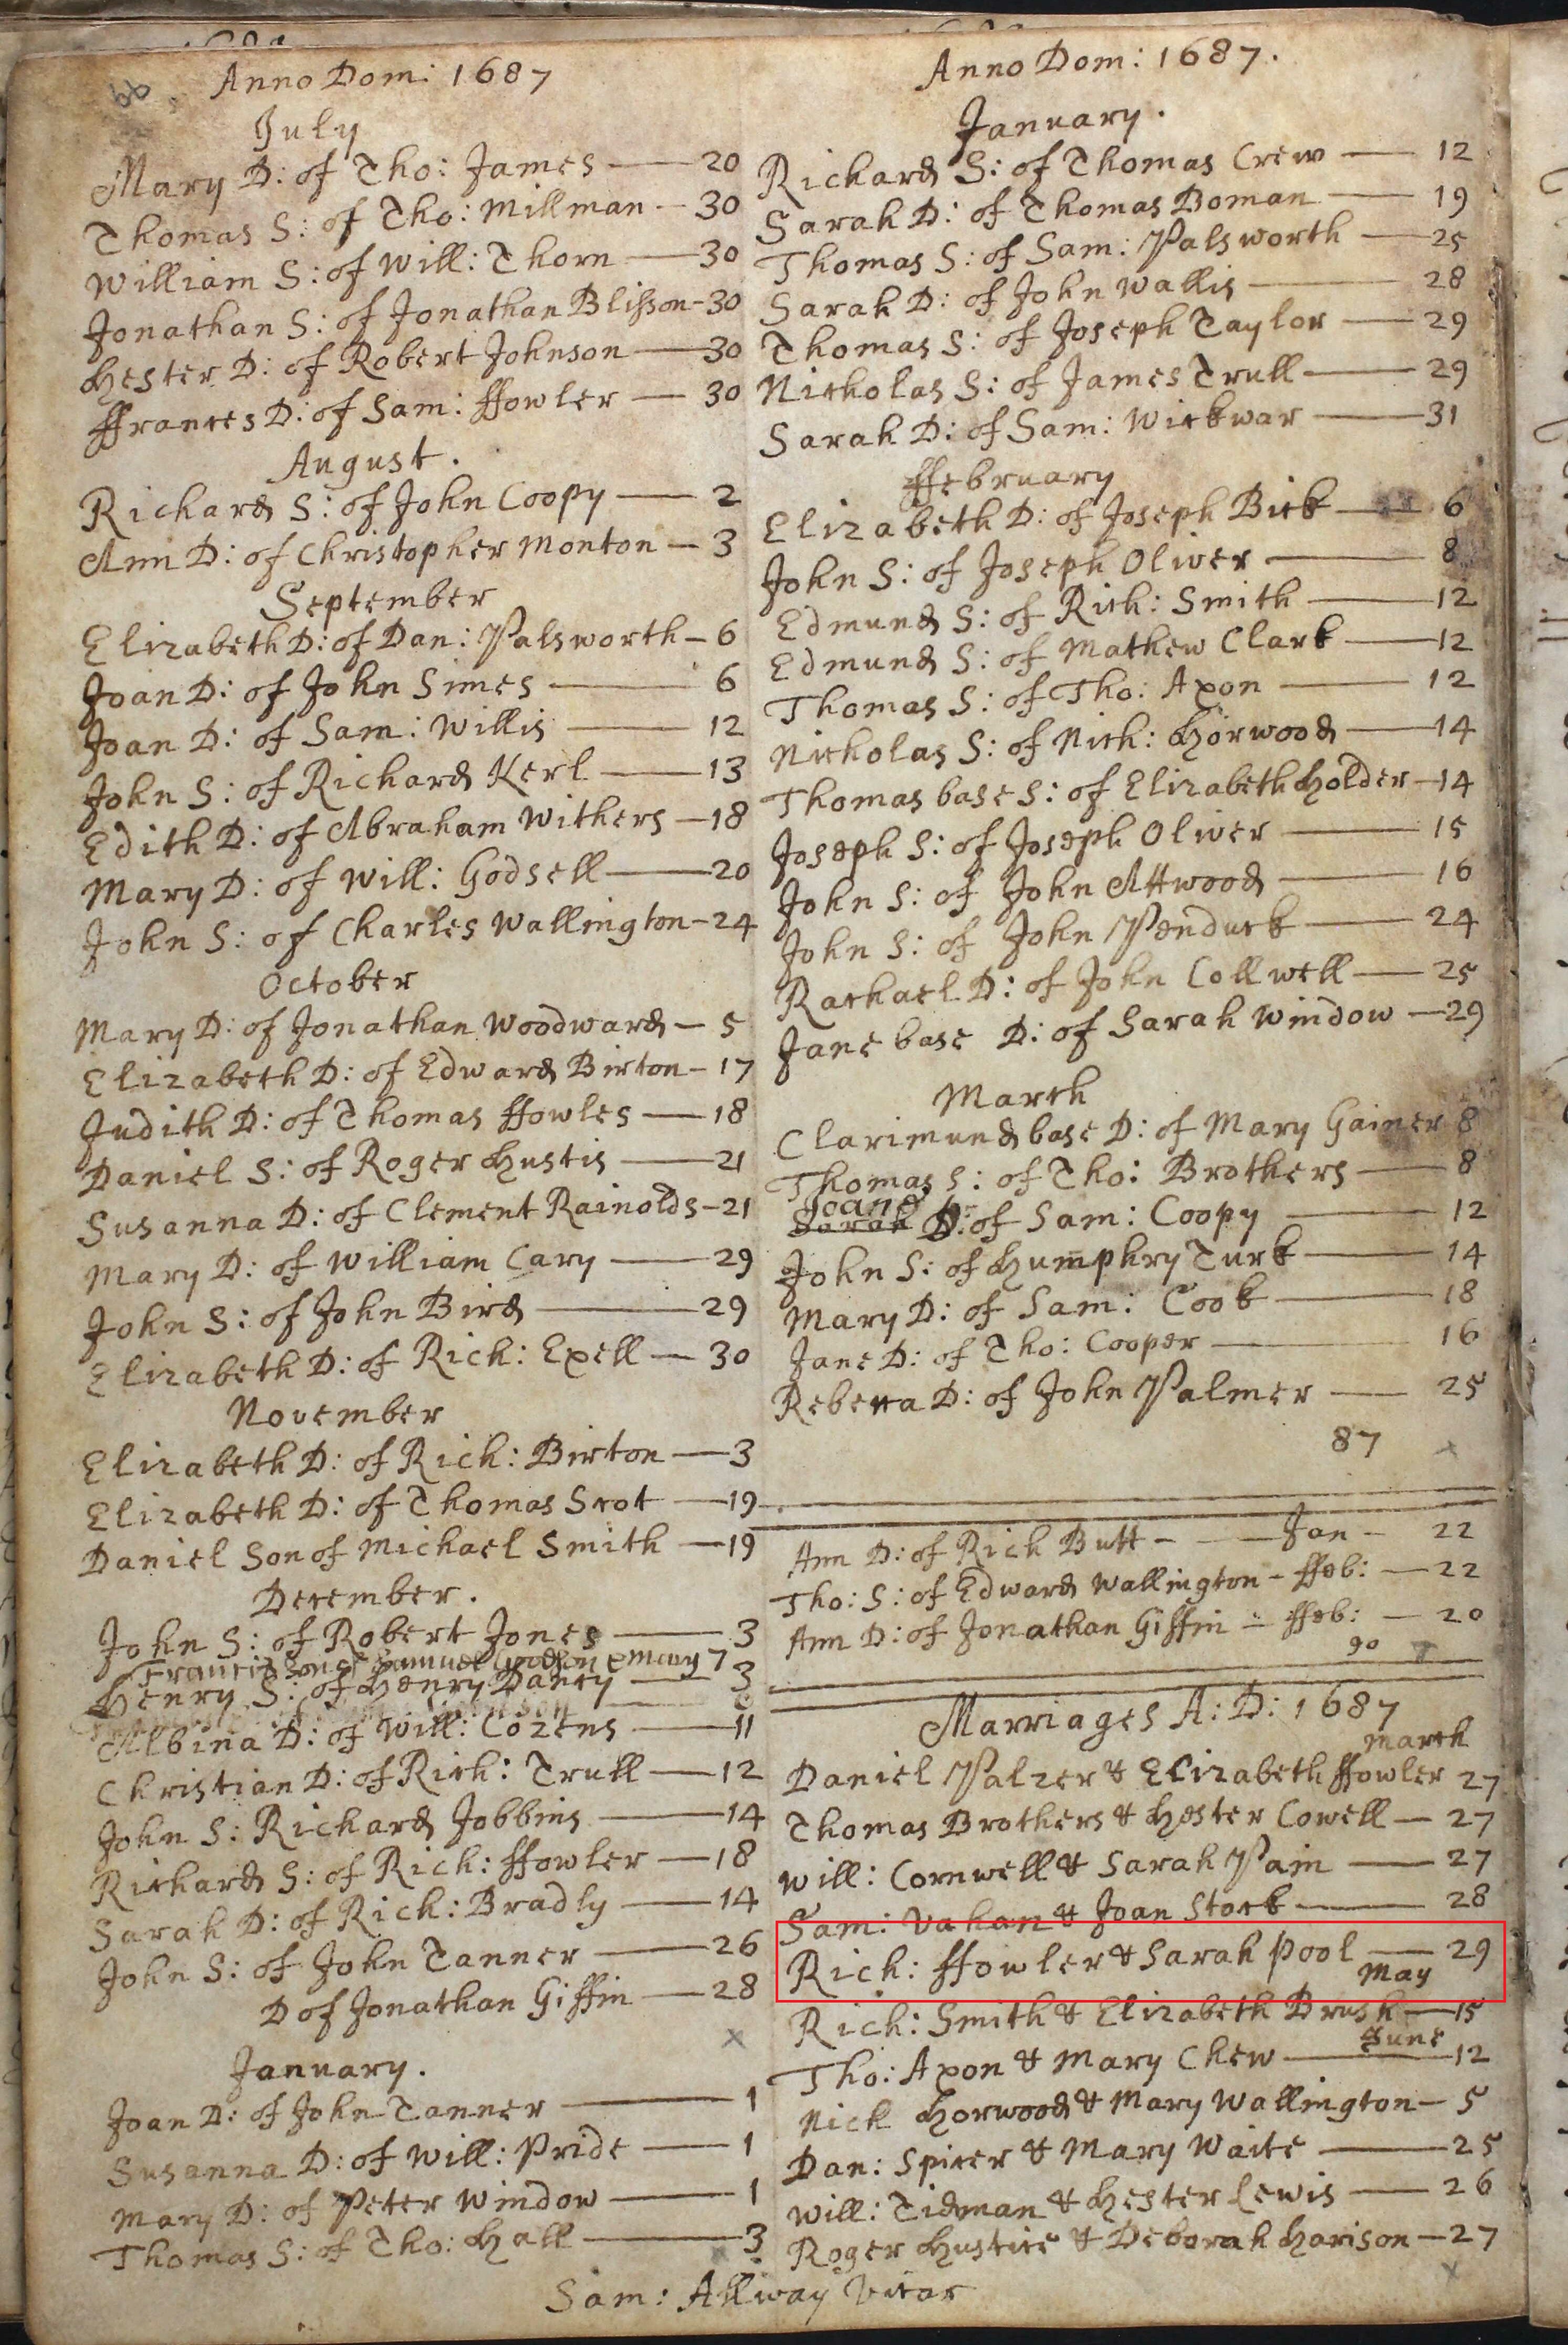 66
Anno Dom: 1687
July
Mary D: of Tho: James — 20
Thomas S: of Tho: Millman — 30
William S: of Will: Thorn — 30
Jonathan S: of Jonathan Blisson - 30
Hester D: of Robert Johnson — 30
ffrances D: of Sam: ffowler — 30
August.
Richard S: of John Coopy — 2
Ann D: of Christopher Monton — 3
September
Elizabeth D: of Dan: Palsworth — 6
Joan D: of John Simes — 6
Joan D: of Sam: Willis — 12
John S: of Richard Kerl — 13
Edith D: of Abraham Withers — 18
Mary D: of Will: Godsell — 20
John S: of Charles Wallington — 24
October
Mary D: of Jonathan Woodward — 5
Elizabeth D: of Edward Birton — 17
Judith D: of Thomas ffowles — 18
Daniel S: of Roger Hustis — 21
Susanna D: of Clement Rainolds — 21
Mary D: of William Cary — 29
John S: of John Bird — 29
Elizabeth D: of Rich: Exell — 30
November
Elizabeth D: of Rich: Birton — 3
Elizabeth D: of Thomas Scot — 19
Daniel Son of Michael Smith — 19
December.
John S: of Robert Jones — 3
Francis Son of Samuel & Mary 7
Henry S: of Henry Dancy — 3
Albina D: of Will: Cozens — 11
Christian D: of Rich: Trull — 12
John S: Richard Jobbins — 14
Richard S: of Rich: ffowler — 18
Sarah D: of Rich: Bradly — 14
John S: of John Tanner — 26
D of Jonathan Giffin — 28
January.
Joan D: of John Tanner — 1
Susanna D: of Will: Pride — 1
Mary D: of Peter Window — 1
Thomas S: of Tho: Hall — 3
Anno Dom: 1687.
January.
Richard S: of Thomas Crew — 12
Sarah D: of Thomas Boman — 19
Thomas S: of Sam: Palsworth — 25
Sarah D: of John Wallis — 28
Thomas S: of Joseph Taylor — 29
Nicholas S: of James Trull — 29
Sarah D: of Sam: Wickwar — 31
ffebruary
Elizabeth D: of Joseph Bick — 6
John S: of Joseph Oliver — 8
Edmund S: of Rich: Smith — 12
Edmund S: of Mathew Clark — 12
Thomas S: of Tho: Axon — 12
Nicholas S: of Nich: Horwood — 14
Thomas base S: of Elizabeth Holder — 14
Joseph S: of Joseph Oliver — 15
John S: of John Attwood — 16
John S: of John Penduck — 24
Rachael D: of John Collwell — 25
Jane base D: of Sarah Window — 29
March
Clarimund base D: of Mary Gainer 8
Thomas S: of Tho: Brothers — 8
Joane
Sarah D: of Sam: Coopy — 12
John S: of Humphry Turk — 14
Mary D: of Sam: Cook — 18
Jane D: of Tho: Cooper — 16
Rebecca D: of John Palmer — 25
87
Ann D: of Rich Butt — Jan — 22
Tho: S: of Edward Wallington — ffeb: — 22
Ann D: of Jonathan Giffin — ffeb: — 20
90
Marriages A: D: 1687
March
Daniel Palzer & Elizabeth ffowler 27
Thomas Brothers & Hester Cowell — 27
Will: Cornwell & Sarah Pain — 27
Sam: Vahan & Joan Stock — 28
Rich: ffowler & Sarah Pool — 29
May
Rich: Smith & Elizabeth Brush — 15
June
Tho: Axon & Mary Chew — 12
Nich Horwood & Mary Wallington — 5
Dan: Spicer & Mary Waite — 25
Will: Tidman & Hester Lewis — 26
Roger Hustice & Deborah Harison — 27
Sam: Allway Vicar